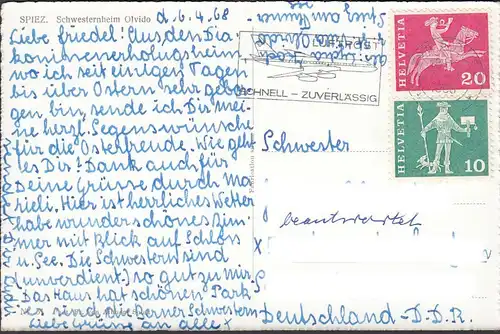 SPIEZ. Schwesternheim Olvido
d. 6.4.68
Liebe Friedel! Aus den Dia
konissenerholungsheim
wo ich seit einigen Tagen
bis über Ostern sehr gebor
gen bin, sende ich Dir mei
ne herzl. Segenswünsche
für die Osterfreude. Wie geht
es Dir! Dank auch für
Deine Grüsse durch Ma
rieli. Hier ist herrliches Wetter
habe wunderschönes Zim
mer mit Blick auf Schloss
u See. Die Schwestern sind
(unverdient) so gut zu mir.
Das Haus hat schönen Park
Berner Schwestern
Liebe Grüsse an alle
SCHNELL – ZUVERLÄSSIG
HELVETIA
20
HELVETIA
10
Schwester
beantwortet
Deutschland - D.D.R.